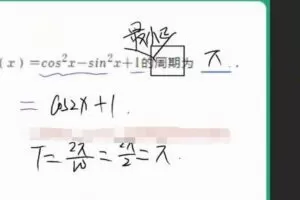 最小正
(x)=cos²x-sin²x+1的周期为 π .
= cos2x+1.
T=2π/ω=2π/2=π.